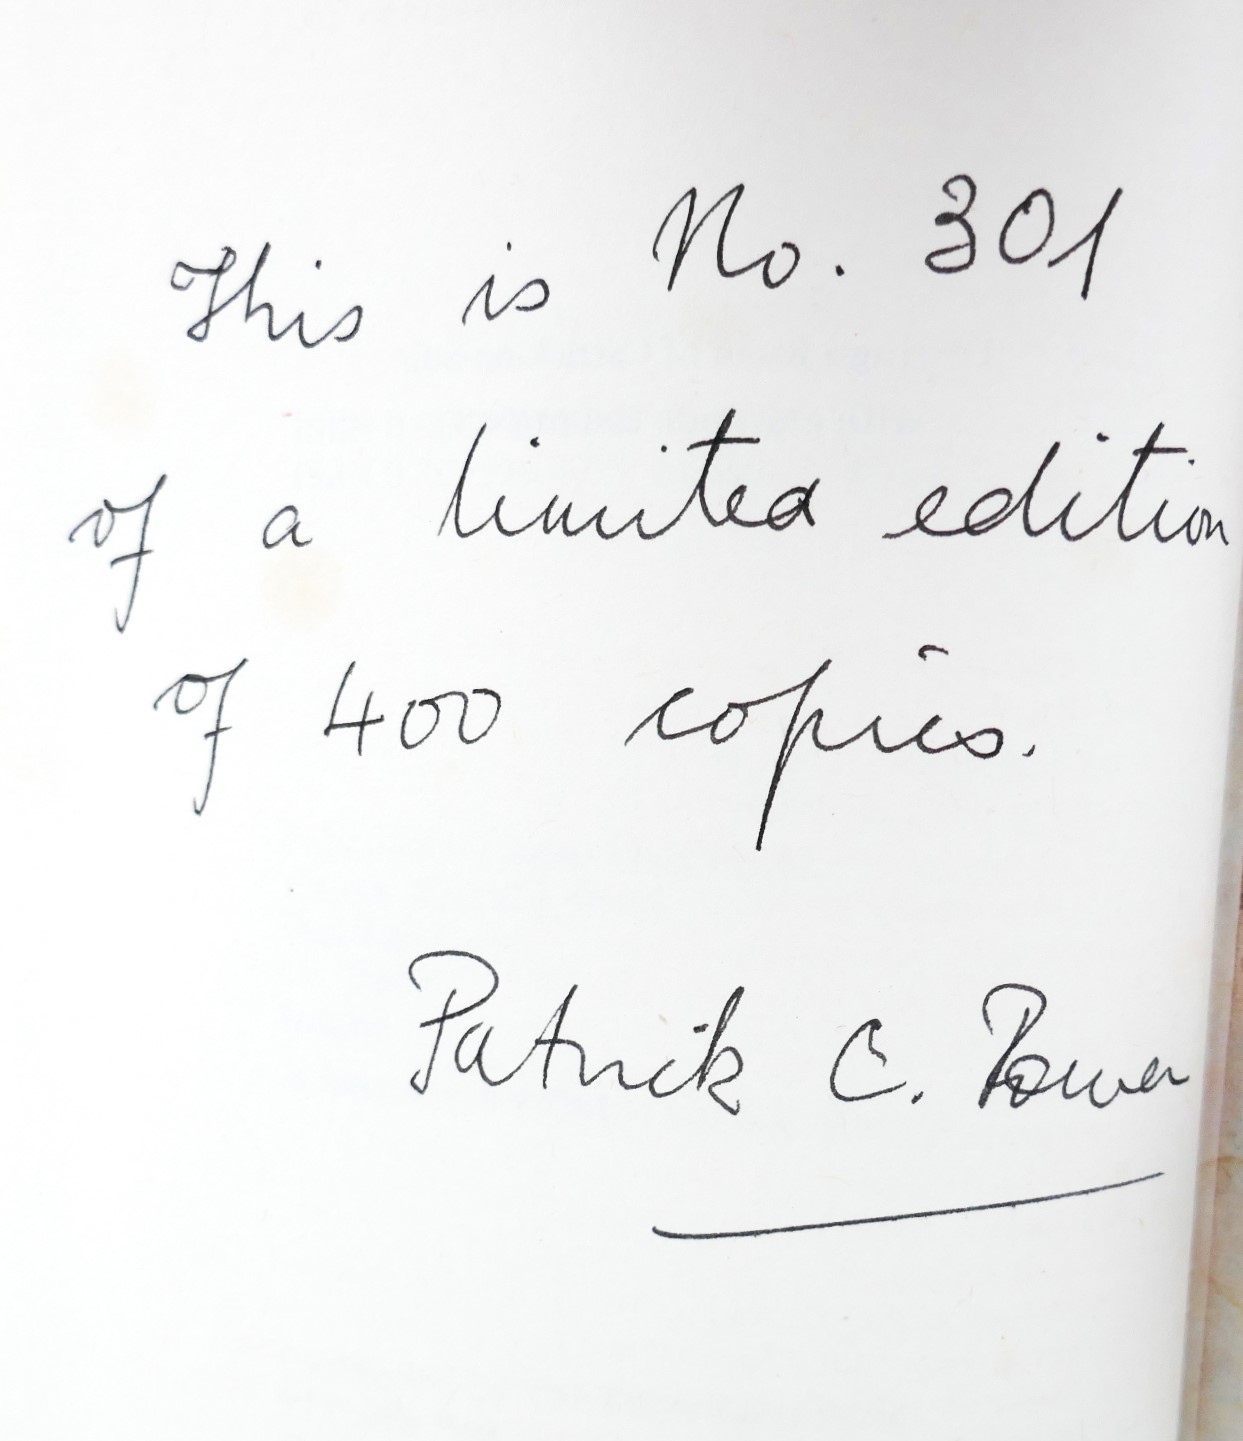 This is No. 301
of a limited edition
of 400 copies.
Patrick C. Power